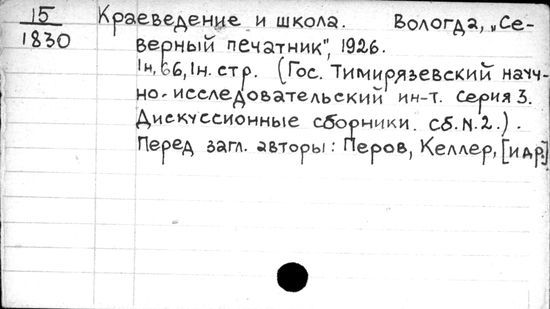 15
1830
Краеведение и школа. Вологда, „Се-
верный печатник", 1926.
1н, 66, 1н. стр. (Гос. Тимирязевский науч-
но-исследовательский ин-т. Серия 3.
Дискуссионные сборники. Сб. N. 2.).
Перед загл. авторы: Перов, Келлер, [и др.]